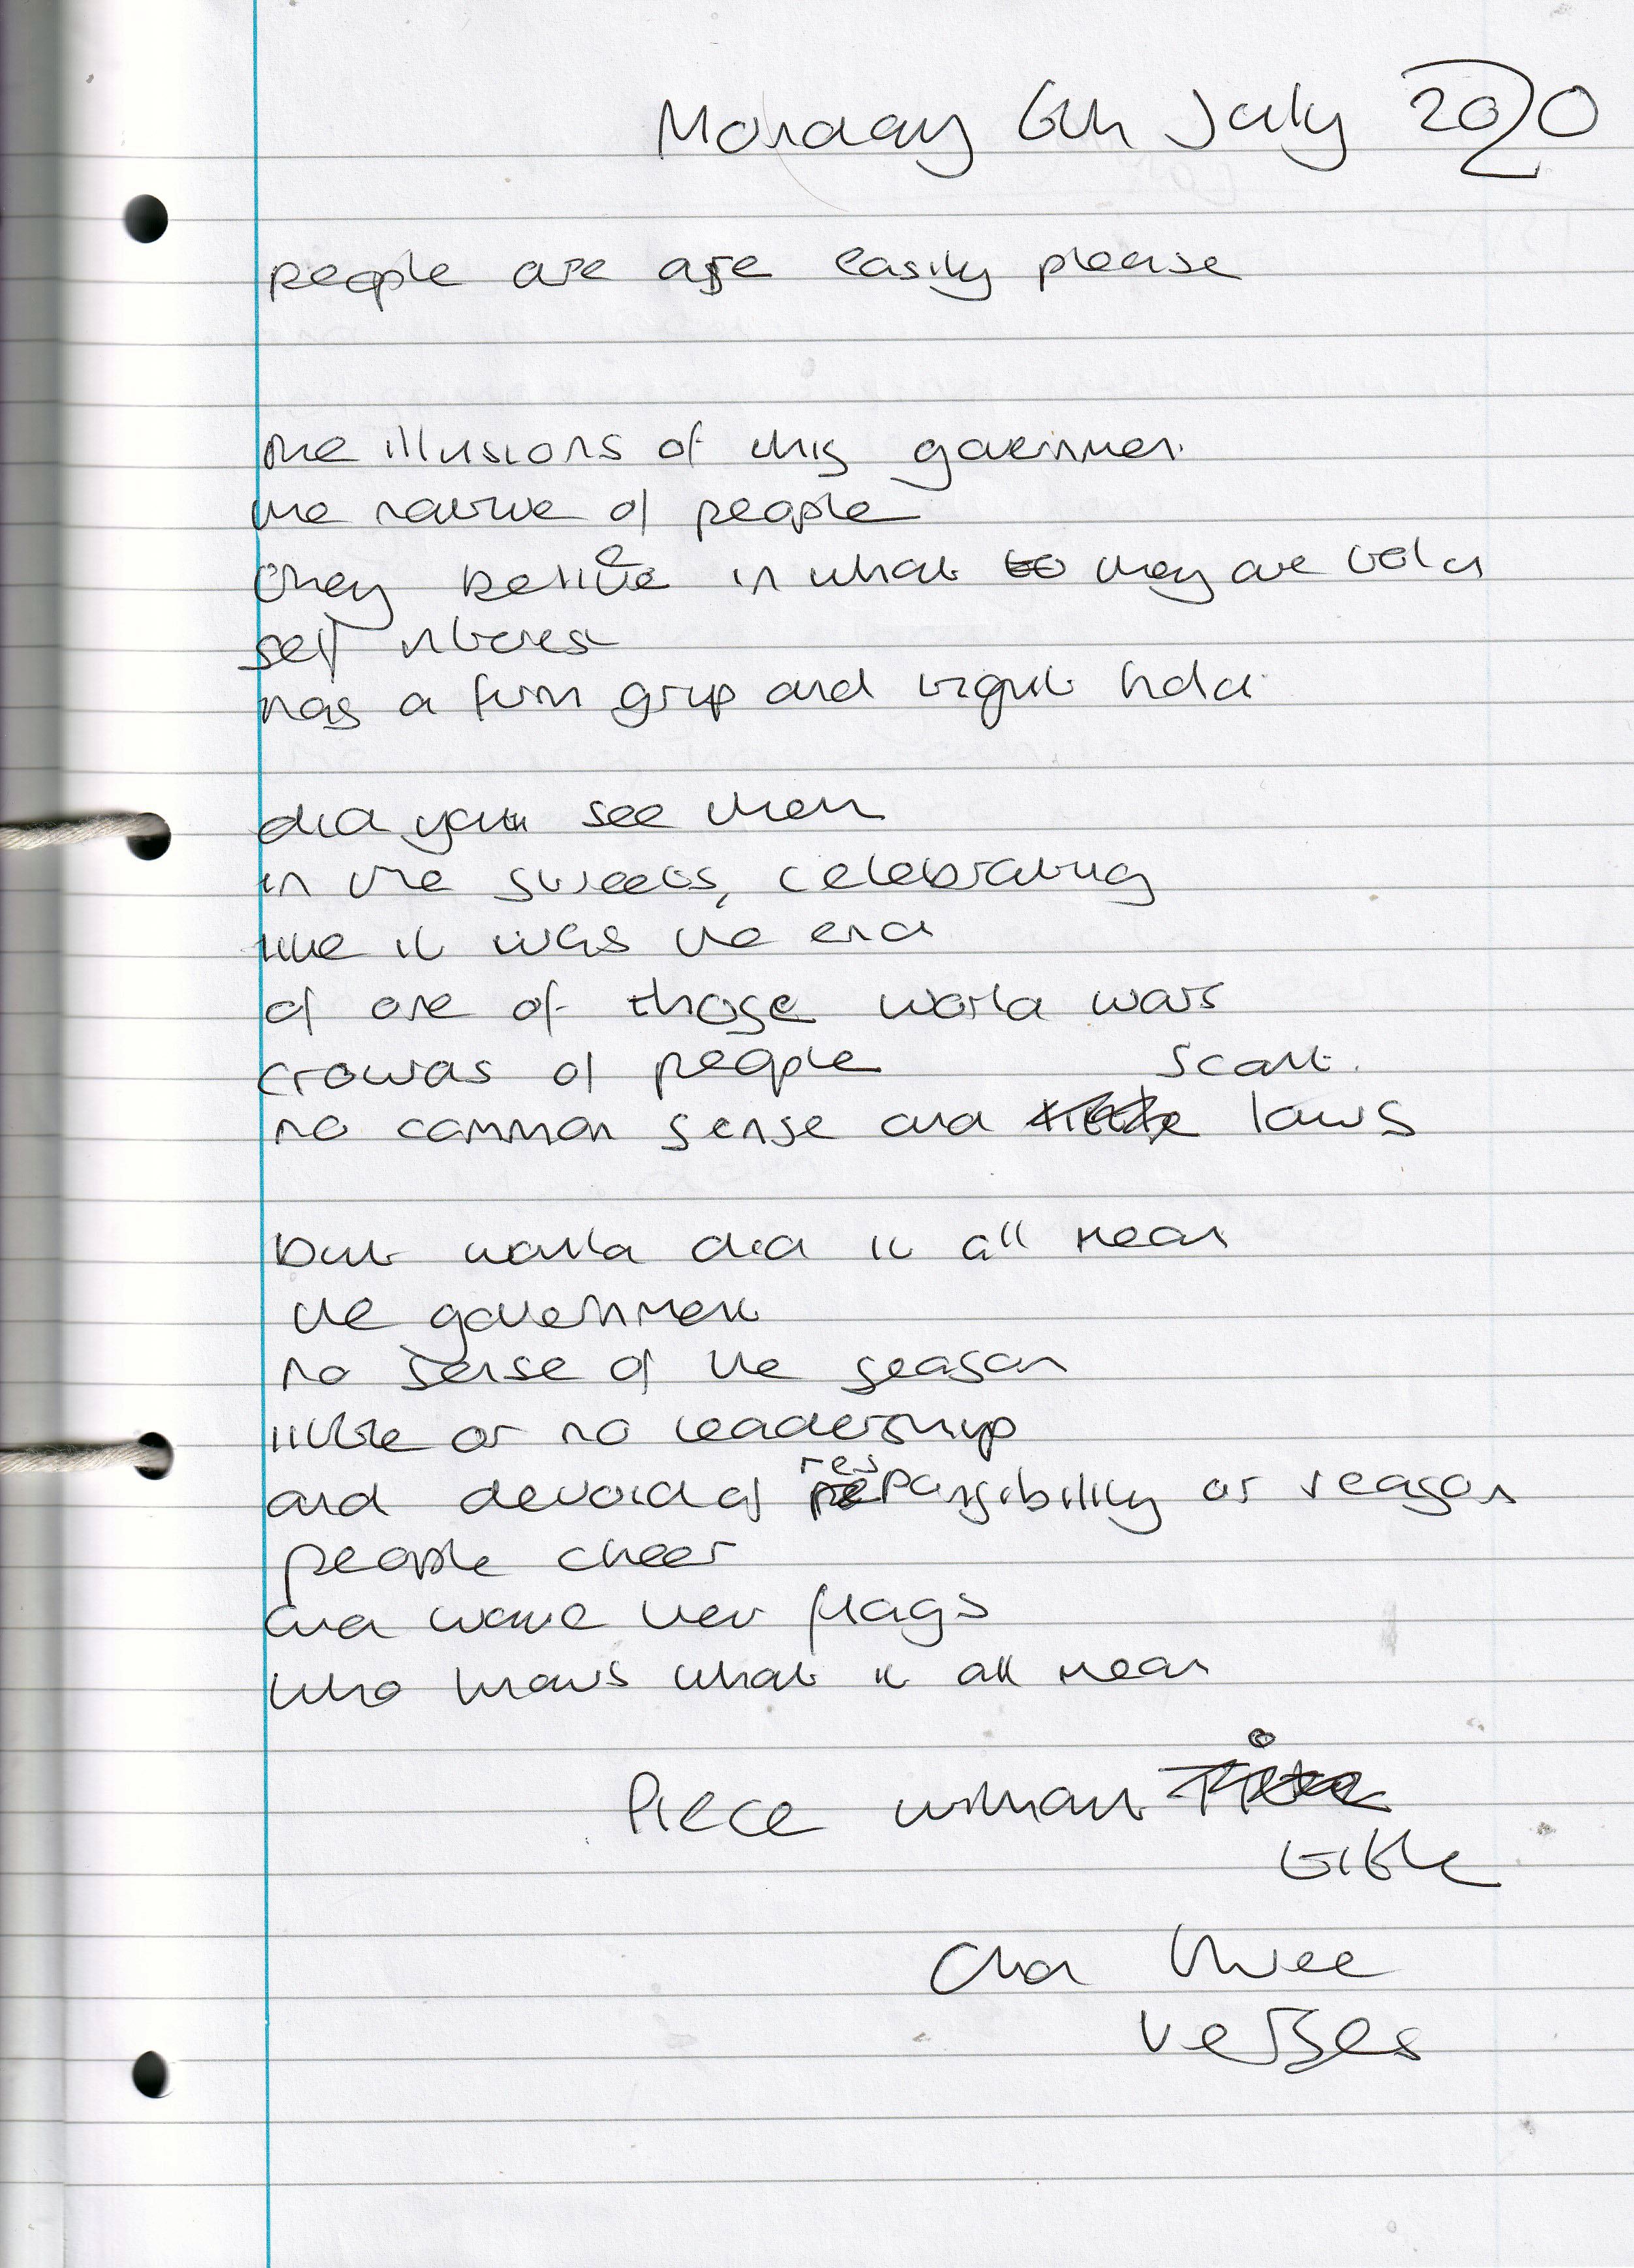 Monday 6th July 2020
people are are easily please
the illusions of this government
the native of people
they believe in what they are told
self interest
has a firm grip and tight hold
did you see them
in the streets, celebrating
like it was the end
of one of those world wars
crowds of people
no common sense and scant laws
but world did it all mean
the government
no sense of the season
little or no leadership
and devoid of responsibility or reason
people cheer
and wave their flags
who knows what it all mean
Piece without
title
and three
verses